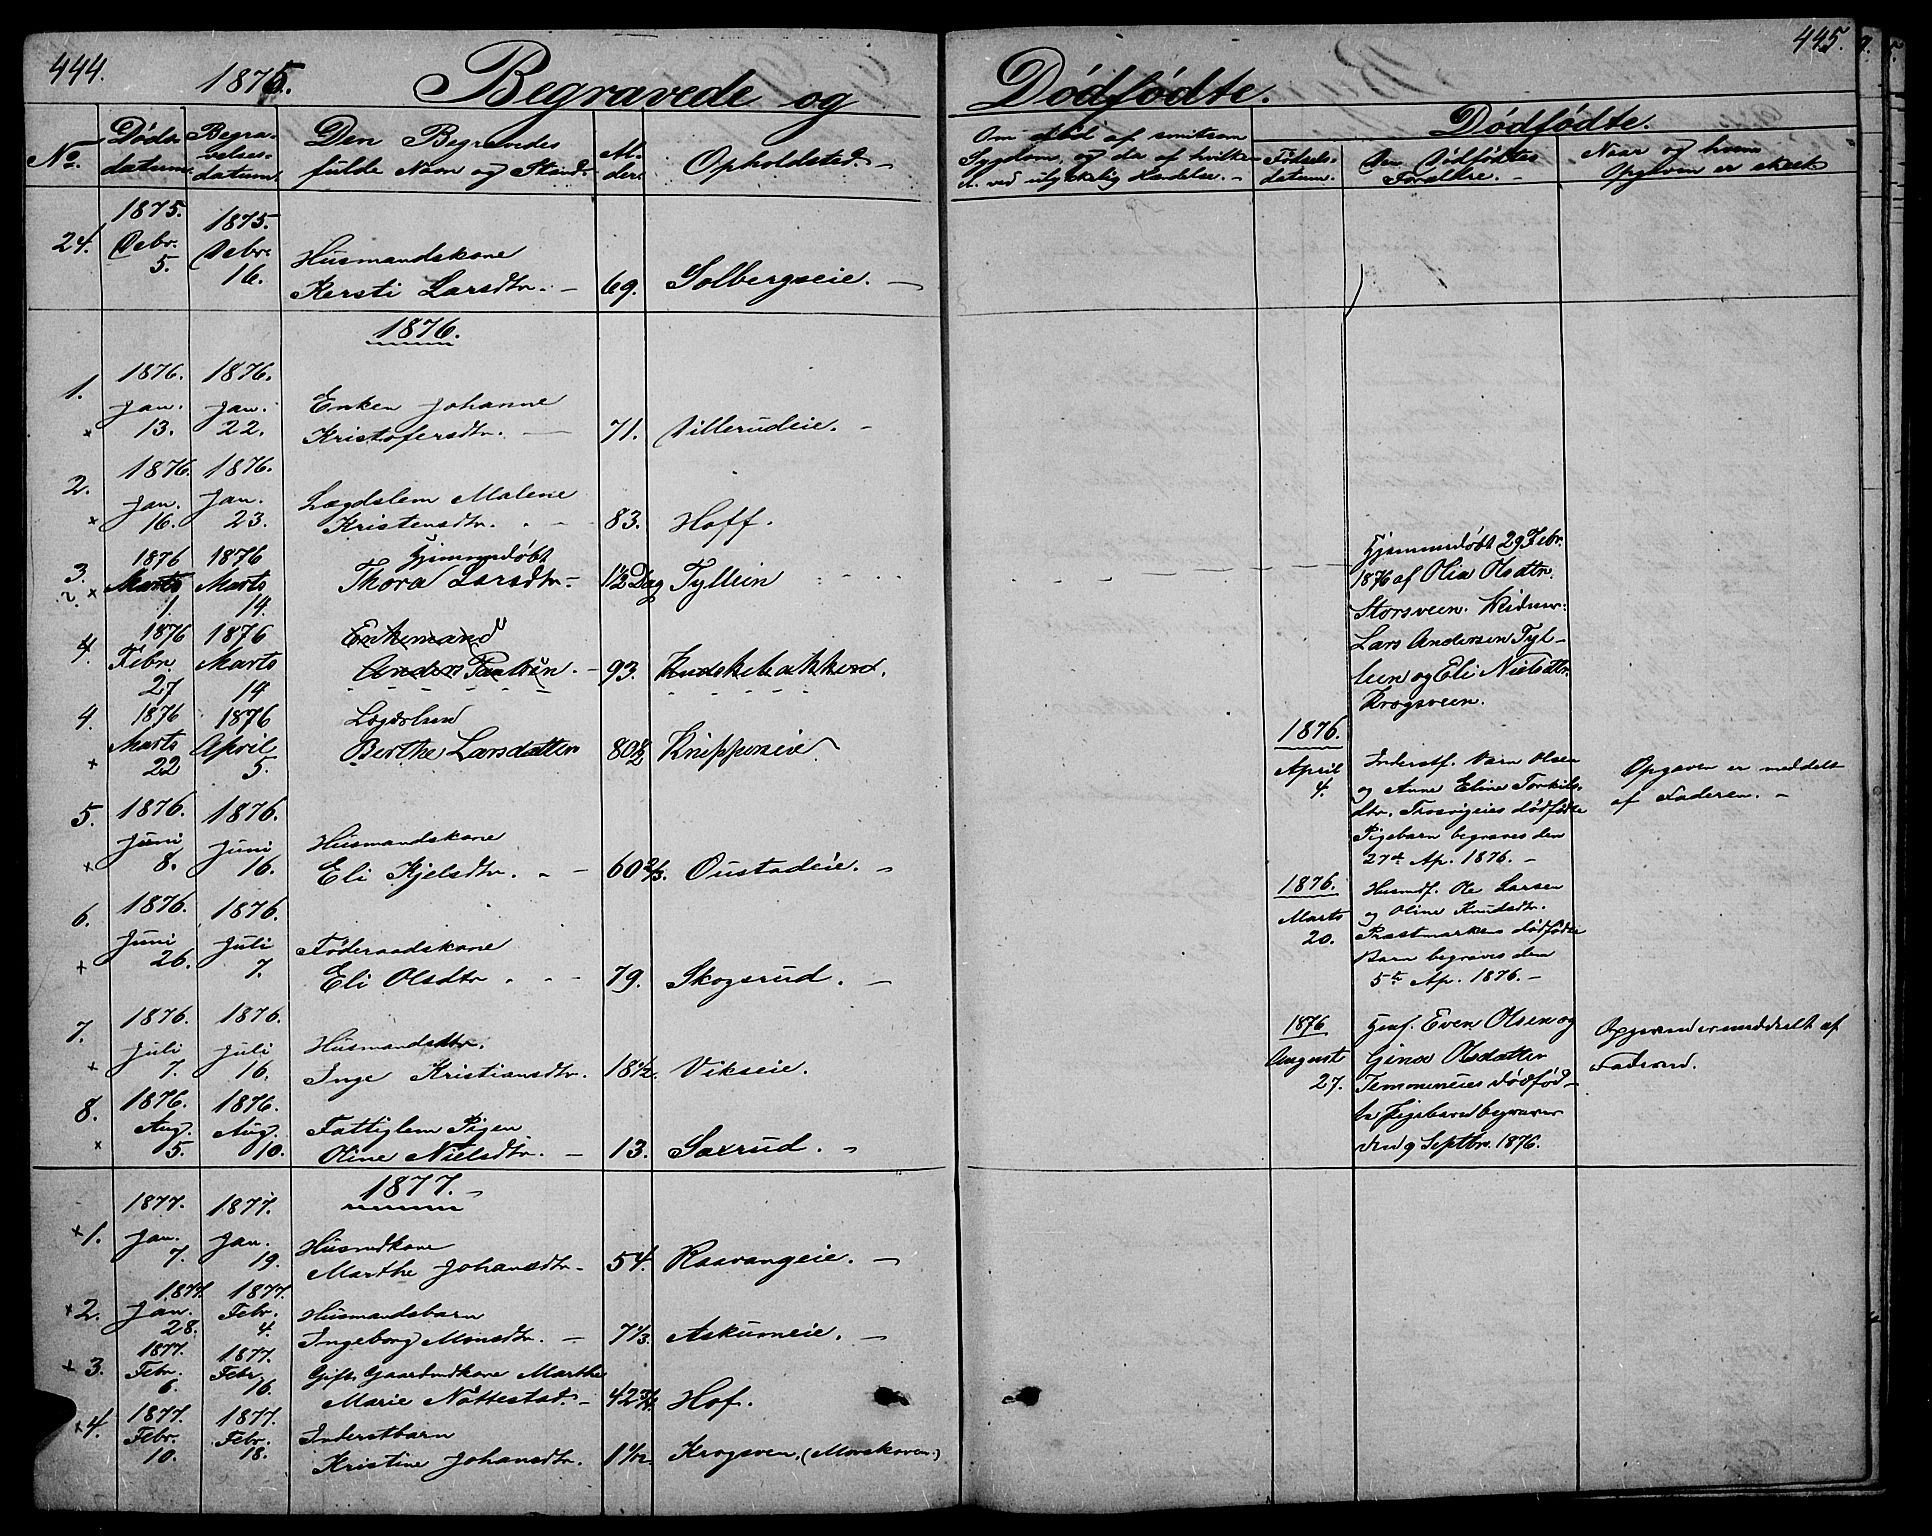 444.
1875.
Begravede og
No.
Døds-
datum.
Begra-
velses-
datum.
Den Begravedes
fulde Navn og Stand.
Al-
der.
Opholdsted.
24.
1875.
Debr.
5.
1875.
Debr.
16.
Husmandskone
Kersti Larsdtr. -
69.
Solbergseie. -
1876.
1.
1876.
Jan.
13.
1876.
Jan.
22.
Enken Johanne
Kristofersdtr. -
71.
Villerudeie. -
2.
1876.
Jan.
16.
1876.
Jan.
23.
Lægdslem Malene
Kristensdtr. -
83.
Hoff.
3.
1876
Marts
1.
1876
Marts
14.
Hjemmedøbt
Thora Larsdtr -
1½ Dag
Tyllein
4.
1876
Febr.
27
1876
Marts
14
Enkemand
Anders Paulsen. -
93.
4.
1876
Marts
22
1876
April
5.
Lægdslem
Berthe Larsdatter
80½
Knippeneie
5.
1876.
Juni
8.
1876.
Juni
16.
Husmandskone
Eli Kjelsdtr. -
60 2/3.
Oustadeie. -
6.
1876.
Juni
26.
1876.
Juli
7.
Føderaadskone
Eli Olsdtr -
79.
Skogsrud. -
7.
1876.
Juli
7.
1876.
Juli
16.
Husmandsdtr.
Inge Kristiansdtr.
18½.
Vikseie.
8.
1876.
Aug.
5.
1876.
Aug.
10.
Fattiglem Pigen
Oline Nielsdtr. -
13.
Saxrud. -
1877. -
+ 1.
1877.
Jan.
7.
1877.
Jan.
19.
Husmdkone
Marthe Johansdtr -
54.
Raavangeie. -
+ 2.
1877.
Jan.
28.
1877.
Febr.
4.
Husmandsbarn
Ingeborg Monsdtr. -
7 1/3.
Askumeie. -
+ 3.
1877.
Febr.
6.
1877.
Febr.
16.
Gift Gaardmdkone Marthe
Marie Nøttestad. -
42 3/4.
Hof.
+ 4.
1877.
Febr.
10.
1877.
Febr.
18.
Inderstbarn
Kristine Johansdtr.
1 1/12.
Krogsven, (Morskoven.)
445.
Dødfødte.
Om død af smitsom
Sygdom, og da af hvilken
el. ved ulykkelig Hændelse. -
Dødfødte.
Fødsels-
datum.
Den Dødfødtes
Forældre. -
Naar og hvem
Opgaven er skeet
Hjemmedøbt 29 Febr.
1876 af Olia Olsdtr.
Storsveen. Vidner:
Lars Andersen Tyl-
leen og Eli Nielsdtr.
Krogsveen.
1876.
April
4.
Inderstf. Olsen
og Anne Eline Torkils-
dtr. dødfødte
Pigebarn begraves den
27de Ap. 1876. -
Opgaven er meddelt
af Faderen. -
1876.
Marts
20.
Husmdf. Ole Larsen
og Oline Knudsdtr.
Præstmarkens dødfødte
Barn begraves den
5te Ap. 1876. -
1876
August
27.
Even Olsen og
Gina Olsdatter
dødfød-
te Pigebarn begraves
den 9 Septbr. 1876.
Opgaven er meddelt af
Faderen.